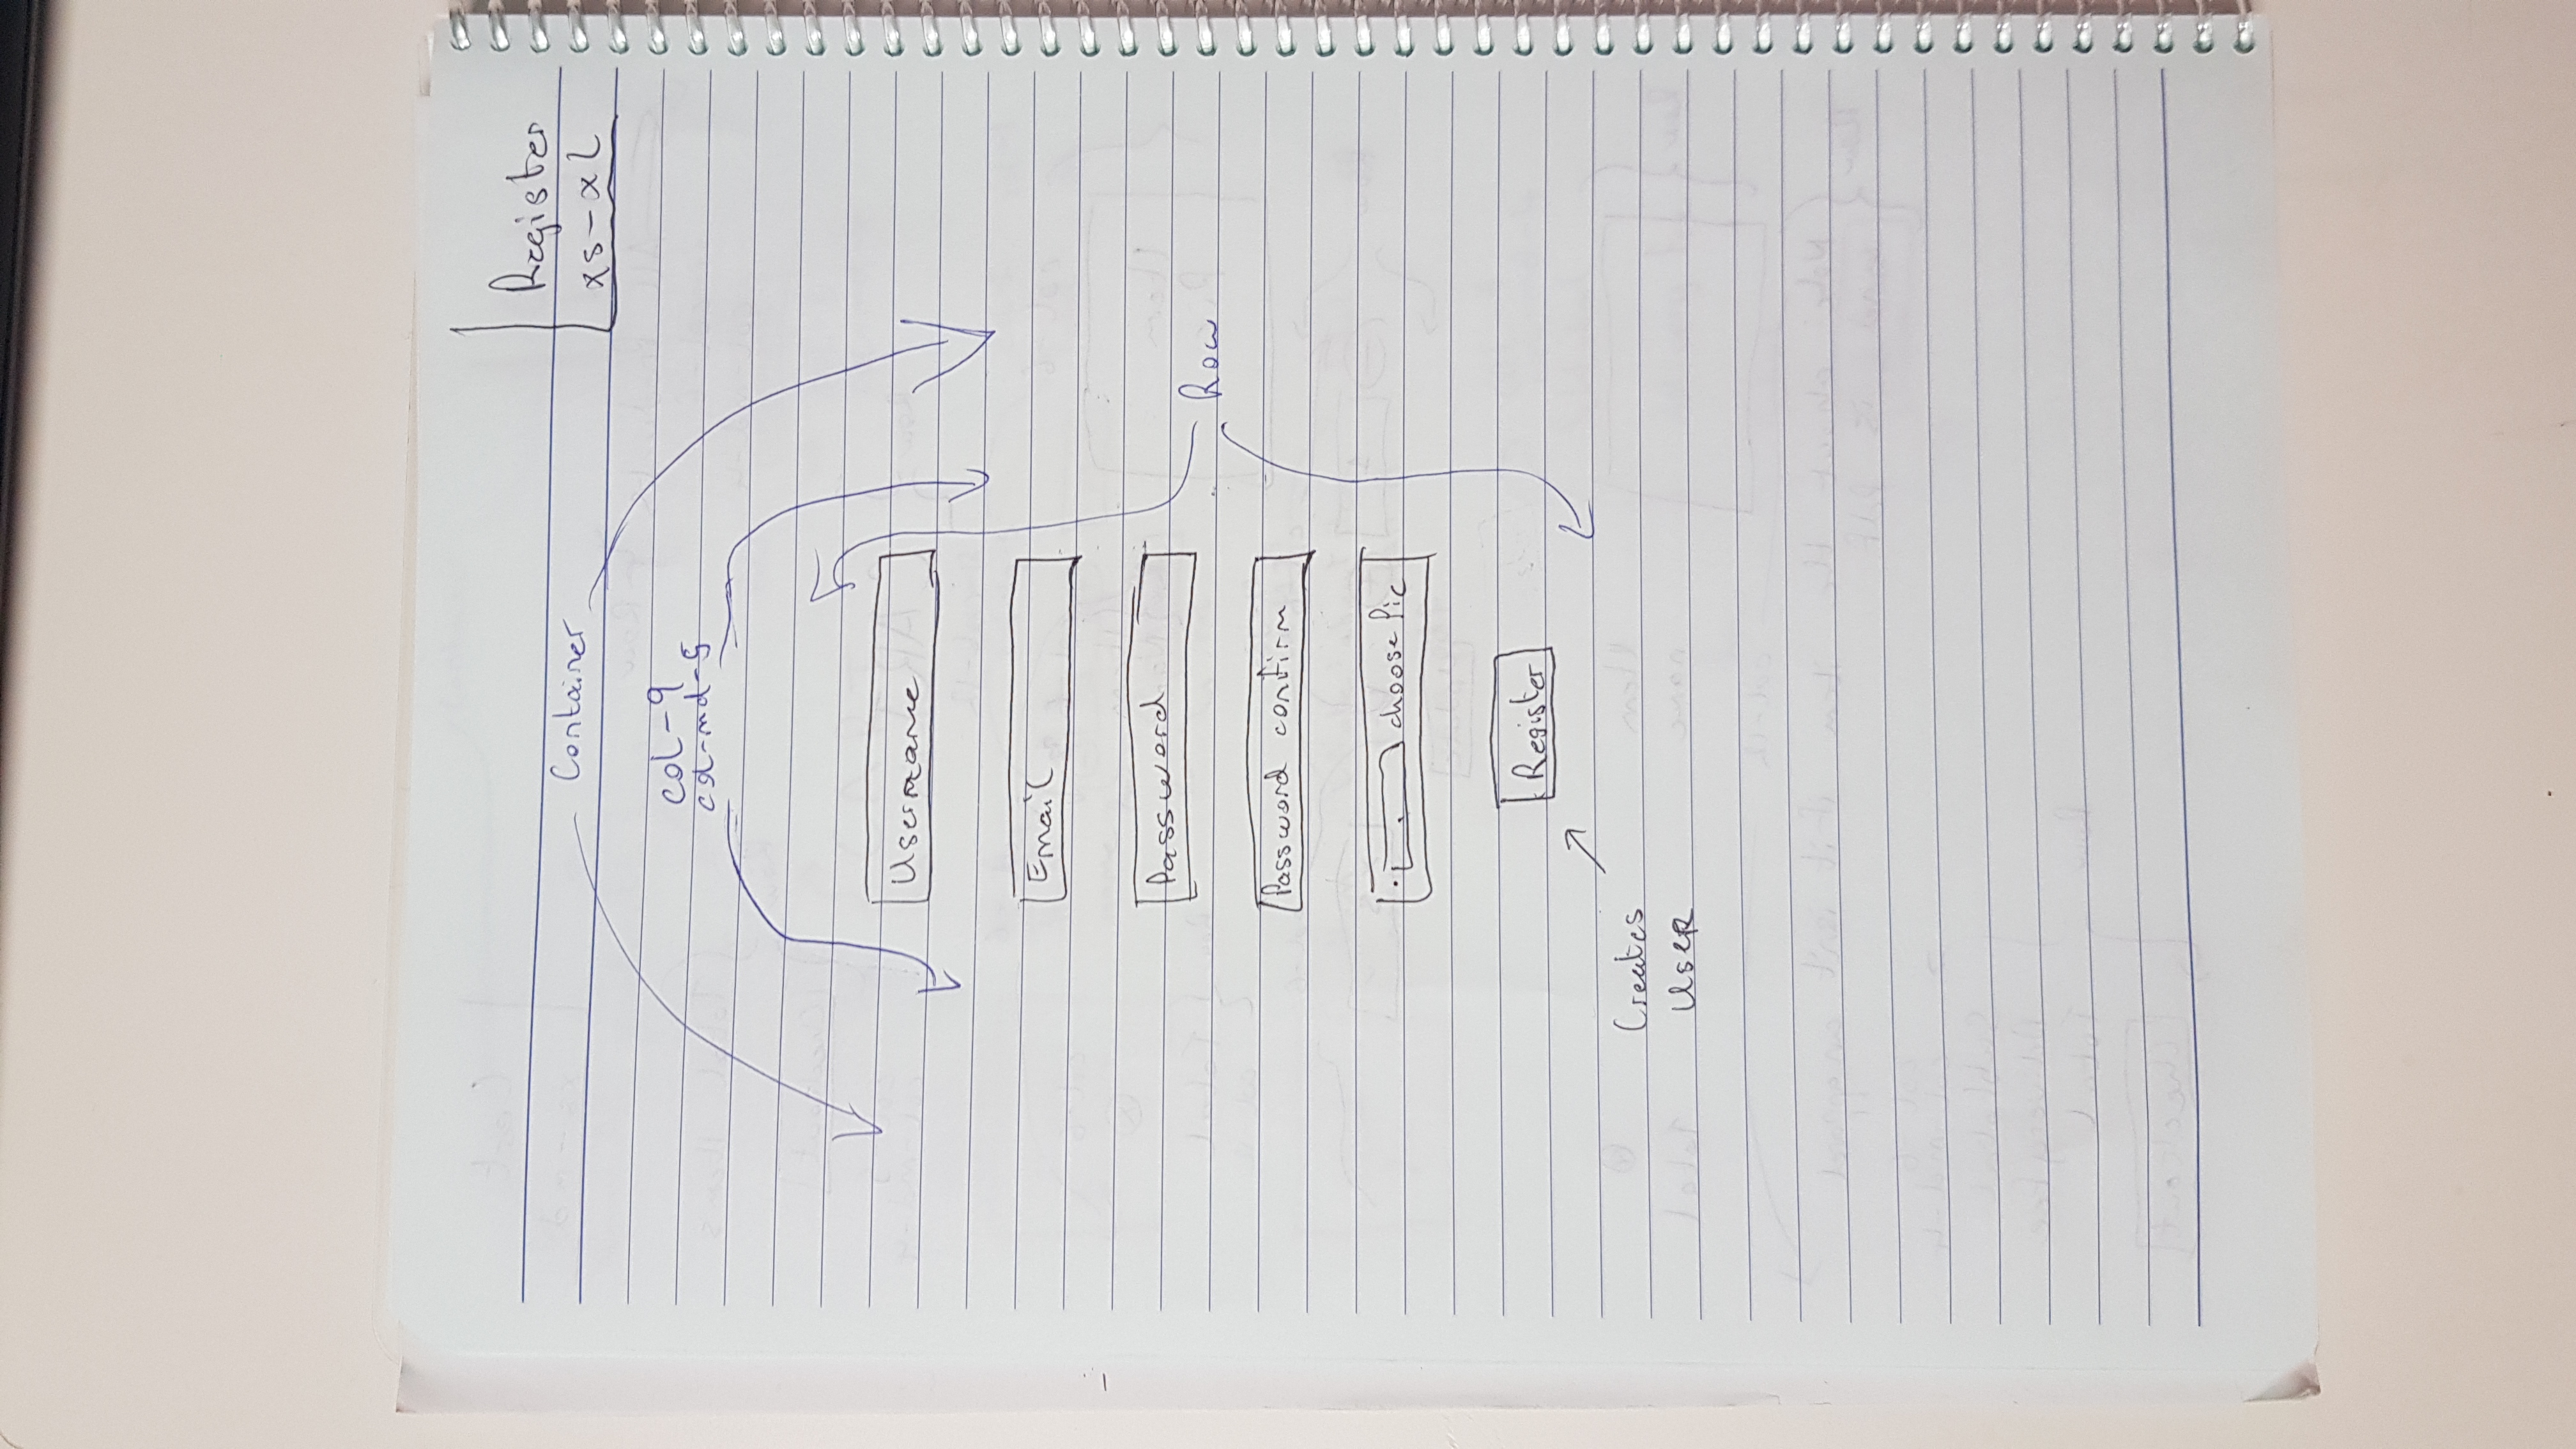 Register
xs-xl
Container
col-9
col-md-5
Username
Email
Password
Row
Password confirm
choose Pic
Register
Creates
User